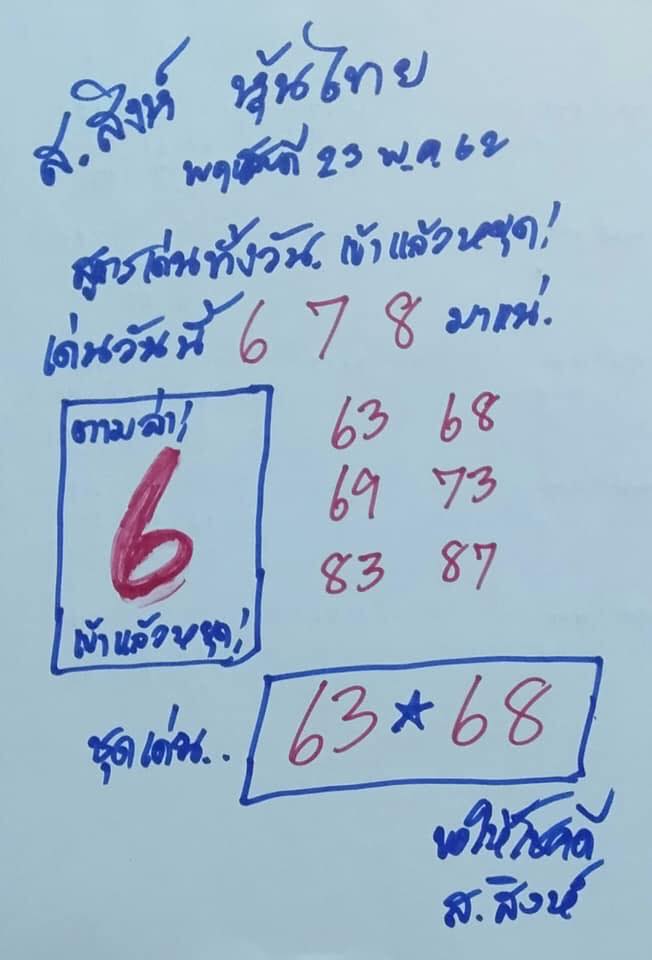 ส.สิงห์ หุ้นไทย
พฤหัสบดี 23 พ.ค. 62
สูตรเด่นทั้งวัน. เข้าแล้วหยุด!
เด่นวันนี้ 6 7 8 มาแน่.
ตามล่า!
6
เข้าแล้วหยุด!
63 68
69 73
83 87
ชุดเด่น.. 63 ★ 68
ขอให้โชคดี
ส.สิงห์